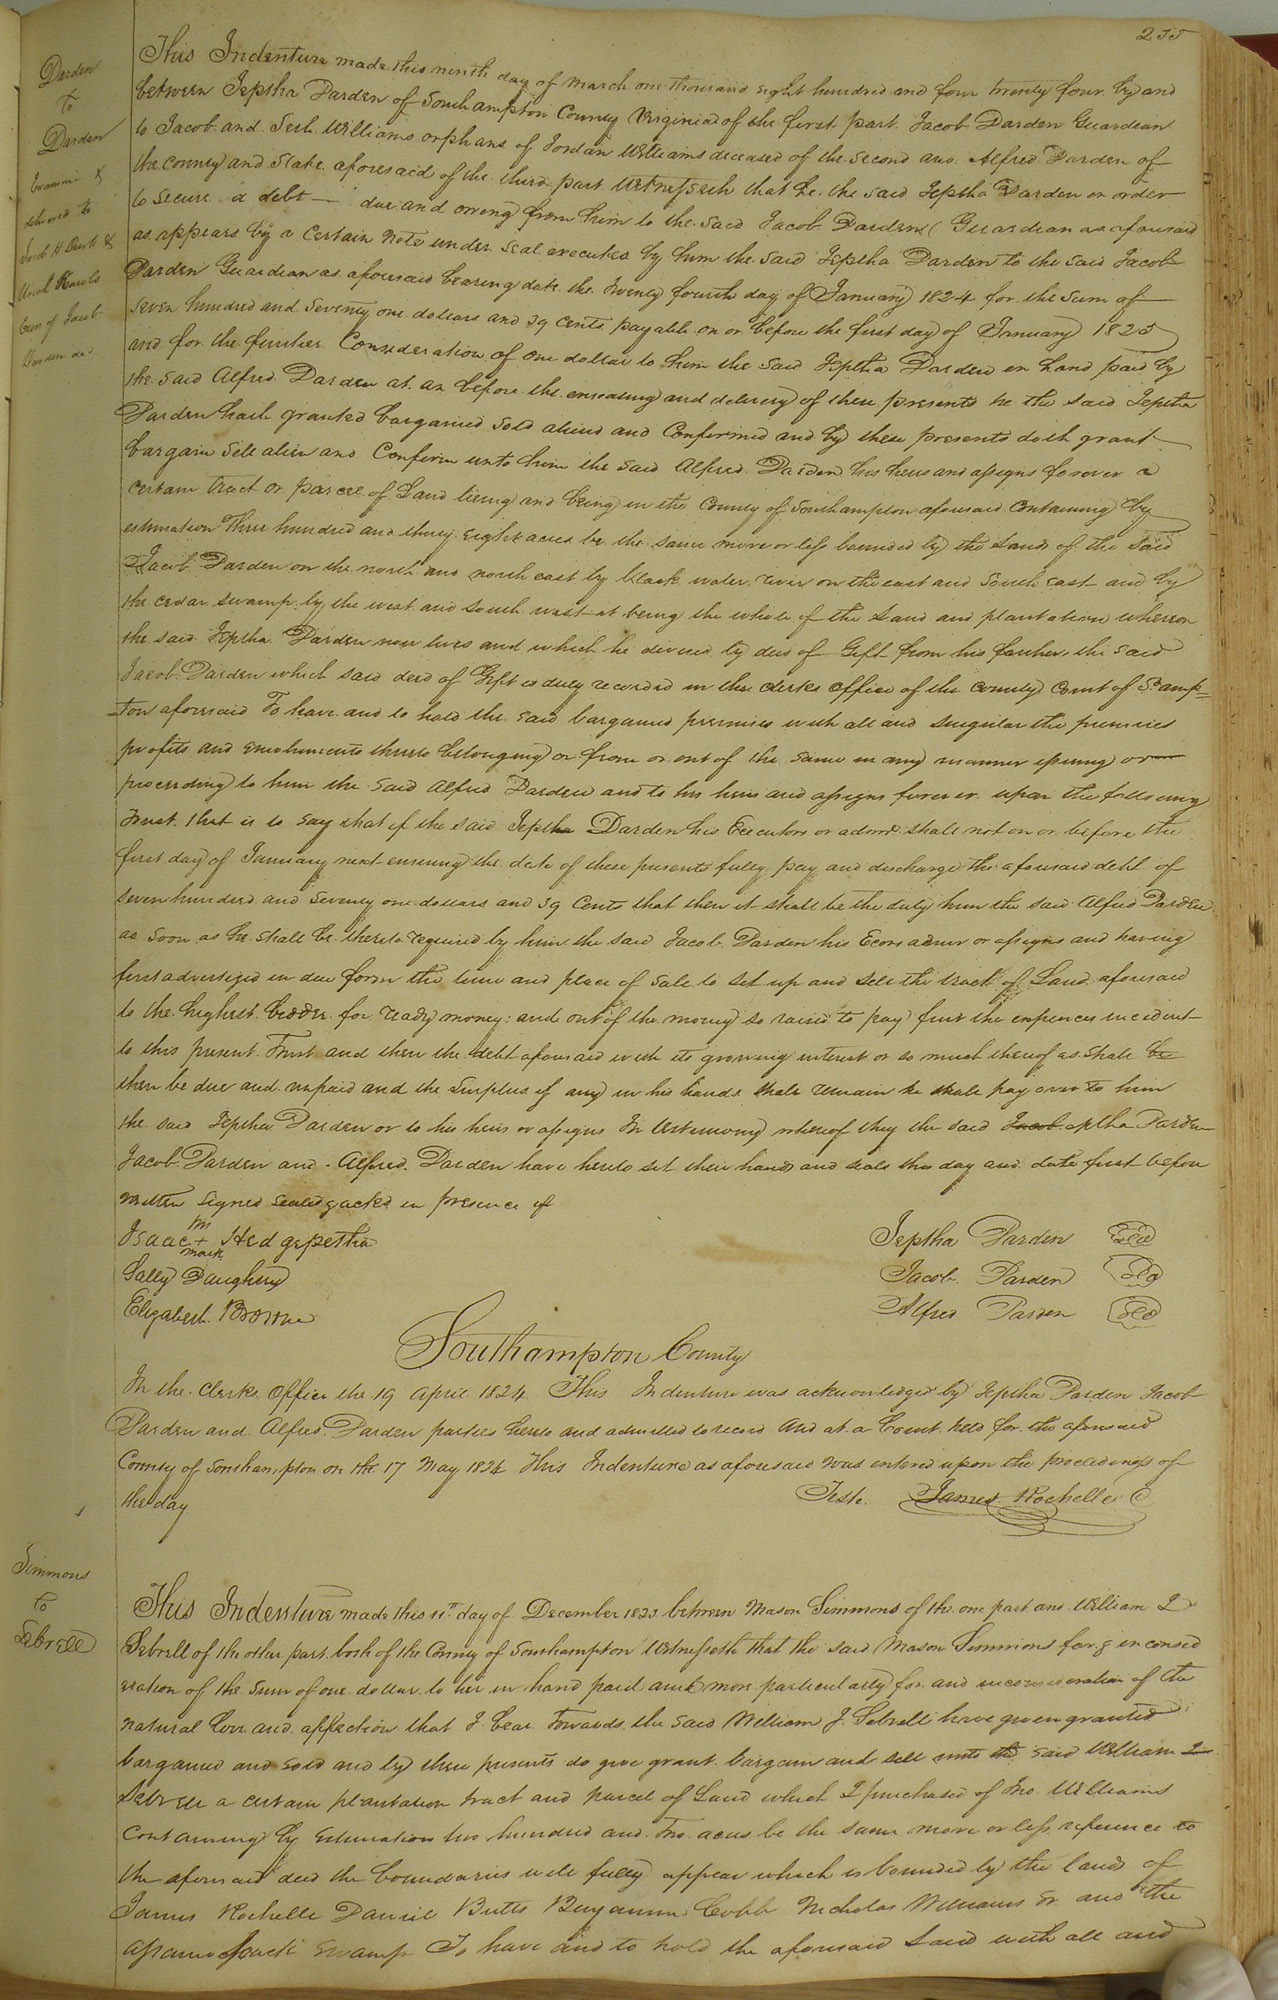 255
Darden
to
Darden
Examind &
delivered to
Jacob H Barrett &
Uriah Rawls
Exors of Jacob
Darden decd
This Indenture made this ninth day of March one thousand eight hundred and four twenty four by and
between Jeptha Darden of Southampton County Virginia of the first part Jacob Darden Guardian
to Jacob and Seth Williams orphans of Jordan Williams deceased of the second and Alfred Darden of
the county and State aforesaid of the third part Witnesseth that he the said Jeptha Darden in order
to secure a debt — due and owing from him to the said Jacob Darden (Guardian as aforesaid
as appears by a certain Note under seal executed by him the said Jeptha Darden to the said Jacob
Darden Guardian as aforesaid bearing date the twenty fourth day of January 1824 for the sum of
seven hundred and seventy one dollars and 39 cents payable on or before the first day of January 1825
and for the further Consideration of one dollar to him the said Jeptha Darden in hand paid by
the said Alfred Darden at an before the ensealing and delivery of these presents he the said Jeptha
Darden hath granted bargained sold aliend and Confirmed and by these presents doth grant
bargain sell alien and Confirm unto him the said Alfred Darden his heirs and assigns forever a
certain tract or parcel of Land lieing and being in the County of Southampton aforesaid Containing by
estimation Three hundred and thirty eight acres be the same more or less bounded by the Lands of the said
Jacob Darden on the north and north east by black water river on the east and south east and by
the cedar swamp by the west and south west it being the whole of the Land and plantation whereon
the said Jeptha Darden now lives and which he derived by deed of Gift from his father the said
Jacob Darden which said deed of Gift is duly recorded in the clerks office of the county Court of So amp=
=ton aforesaid To have and to hold the said bargained premises with all and singular the premises
profits and emoluments thereto belonging or from or out of the same in any manner issuing or
proceeding to him the said Alfred Darden and to his heirs and assigns forever upon the following
Trust that is to say that if the said Jeptha Darden his Executors or admrs shall not on or before the
first day of January next ensuing the date of these presents fully pay and discharge the aforesaid debt of
seven hundred and seventy one dollars and 39 Cents that then it shall be the duty him the said Alfred Darden
as soon as he shall be thereto required by him the said Jacob Darden his Ecors admr or assigns and having
first advertized in due form the time and place of sale to set up and sell the tract of Land aforesaid
to the highest bidder for ready money: and out of the money so raised to pay first the expences incident
to this present Trust and then the debt aforesaid with its growing interest or so much thereof as shall be
then be due and unpaid and the surplus if any in his hands shall remain he shall pay over to him
the said Jeptha Darden or to his heirs or assigns In testimony whereof they the said Jacob eptha Darden
Jacob Darden and Alfred Darden have hereto set their hands and seals this day and date first before
written Signed sealed & ackd in presence of
his
Isaac + Hedgepetha Jeptha Darden Seal
mark
Sally Daughtry Jacob Darden Seal
Elizabeth Browne Alfred Darden Seal
Southampton County
In the clerks Office the 19 April 1824 This Indenture was acknowledged by Jeptha Darden Jacob
Darden and Alfred Darden parties hereto and admitted to record And at a Court held for the aforesaid
County of Southampton on the 17 May 1824 This Indenture as aforesaid was entered upon the proceedings of
the day
Teste. James Rochelle C
Simmons
to
Sebrell
This Indenture made this 11th day of December 1823 between Mason Simmons of the one part and William J
Sebrell of the other part both of the County of Southampton Witnesseth that the said Mason Simmons for & in consid
eration of the sum of one dollar to her in hand paid and more particularly for and in consideration of the
natural love and affection that I bear towards the said William J. Sebrell have given granted
bargained and sold and by these presents do give grant bargain and sell unto the said William J
Sebrell a certain plantation tract and parcel of Land which I purchased of Jno Williams
Containing by estimation two hundred and two acres be the same more or less reference to
the aforesaid deed the boundaries will fully appear which is bounded by the lands of
James Rochelle Daniel Butts Benjamin Cobb Nicholas Williams Sr and the
Assamoosack Swamp To have and to hold the aforesaid Land with all and